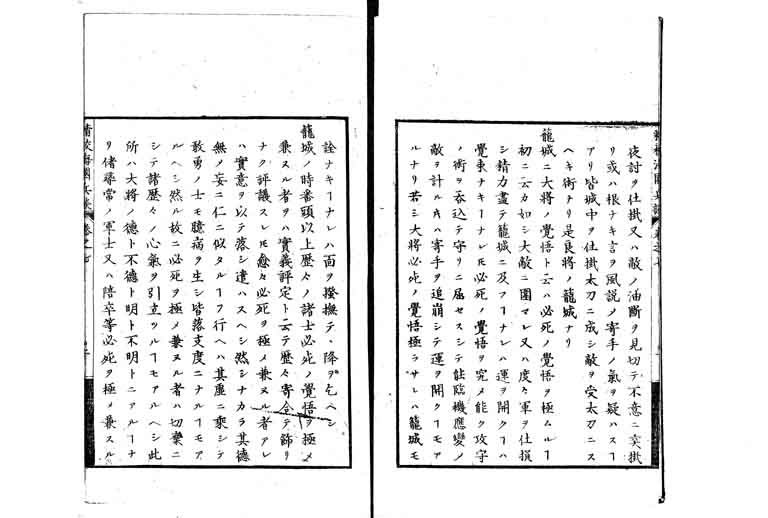 夜討ヲ仕掛又ハ敵ノ油断ヲ見切テ不意ニ突掛
リ或ハ根ナキ言ヲ風説メ寄手ノ氣ヲ疑ハスヿ
アリ皆城中ヲ仕掛太刀ニ成シ敵ヲ受太刀ニス
ヘキ術ナリ是良將ノ籠城ナリ
籠城ニ大將ノ覺悟ト云ハ必死ノ覺悟ヲ極ムルヿ
初ニ云カ如シ大敵ニ圍マレ又ハ度々軍ヲ仕損
シ精力盡テ籠城ニ及フヿナレハ運ヲ開クヿハ
覺束ナキヿナレ𪜈必死ノ覺悟ヲ究メ能ク攻守
ノ術ヲ呑込テ守リニ屈セスシテ能臨機應變ノ
敵ヲ計ル片ハ寄手ヲ追崩シテ運ヲ開クヿモア
ルナリ若シ大將必死ノ覺悟極ラサレハ籠城モ
詮ナキヿナレハ面ヲ撥撫テ降ヲ乞ヘシ
籠城ノ時番頭以上歷々ノ諸士必死ノ覺悟ヲ極メ
兼ヌル者ヲハ實義評定ト云テ歷々寄合テ飾リ
ナク評議スレ𪜈愈々必死ヲ極メ兼ヌル者アレ
ハ實意ヲ以テ落シ遣ハスヘシ然シナカラ其德
無ノ妄ニ仁ニ似タルヿヲ行ヘハ其虛ニ乘シテ
敢勇ノ士モ臆病ヲ生シ皆落支度ニナルヿモア
ルヘシ然ル故ニ必死ヲ極メ兼ヌル者ハ切棄ニ
シテ諸歷々ノ心氣ヲ引立ツルヿモアルヘシ此
所ハ大將ノ德ト不德ト明ト不明トニアルヿナ
リ偖尋常ノ軍士又ハ陪卒等必死ヲ極メ兼ヌル
精校海國兵談 卷之七